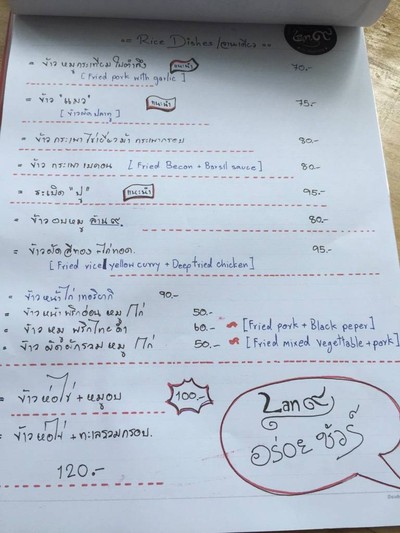 Rice Dishes / อาหารจานเดียว
ลาน๙
= ข้าว หมูกระเทียม ใบตำลึง แนะนำ 70.-
[ Fried pork with garlic ]
= ข้าว "แมว" แนะนำ 75.-
[ ข้าวผัดปลาทู ]
= ข้าว กระเพาไข่เยี่ยวม้า กระเพากรอบ 80.-
= ข้าว กระเพาเบคอน [ Fried Becon + Barsil sauce ] 80.-
= ระเบิด "ปู" แนะนำ 95.-
= ข้าว อบหมู ล้าน ๙. 80.-
= ข้าวผัดสีทอง + ไก่ทอด. 95.-
[ Fried rice / yellow curry + Deep fried chicken ]
= ข้าว หน้าไก่ เทอริยากิ 90.-
= ข้าว หน้า พริกอ่อน หมู / ไก่ 50.-
= ข้าว หมู พริกไทยดำ 60.- [ Fried pork + Black peper ]
= ข้าว ผัดผักรวม หมู / ไก่ 50.- [ Fried mixed vegettable + pork ]
= ข้าวห่อไข่ + หมูอบ 100.-
= ข้าวห่อไข่ + ทะเลรวมกรอบ.
120.-
Lan๙
อร่อย ชัวร์